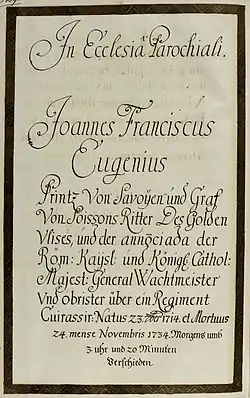 In Ecclesia Parochiali.
Joannes Franciscus
Eugenius
Printz Von Savoÿen und Graf
Von Soissons Ritter Des Golden
Vlises, und der annõciada der
Röm: Kaÿsl: und Königl Cathol:
Majest: General Wachtmeister
Vnd obrister über ein Regiment
Cuirassir: Natus 23 1714. et Mortuus
24. mense Novembris 1734. Morgens umb
3 uhr und 20 Minuten
Verschieden.